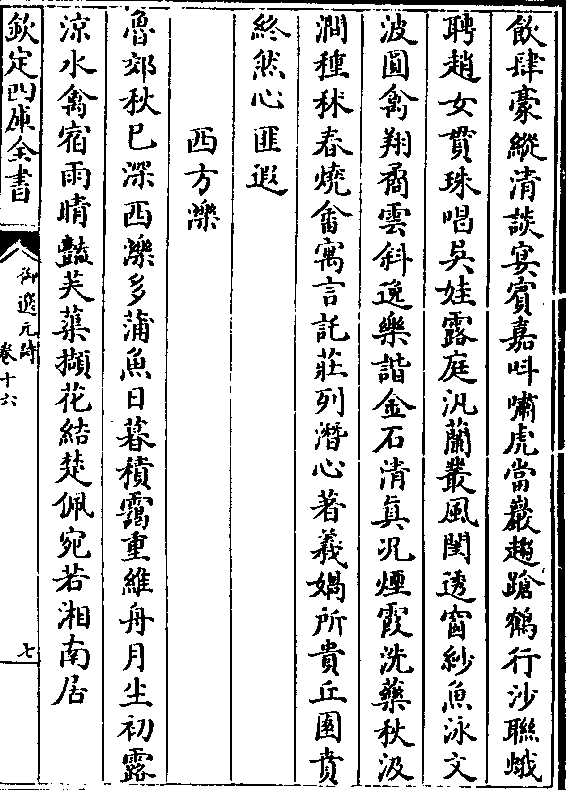 飲肆豪縱清談宴賓嘉叫嘯虎當巖趨蹌鶴行沙聯蛾
聘趙女貫珠唱吳娃露庭汎蘭叢風閨透窗紗魚泳文
波圓禽翔矞雲斜逸樂諧金石清真况煙霞洗藥秋汲
澗種秫春燒畬寓言託莊列潛心著羲媧所貴丘園賁
終然心匪遐
西方濼
魯郊秋已深西濼多蒲魚日暮積靄重維舟月生初露
涼水禽宿雨晴豔芙蕖擷花結楚佩宛若湘南居
欽定四庫全書
御選元詩
卷十六
七